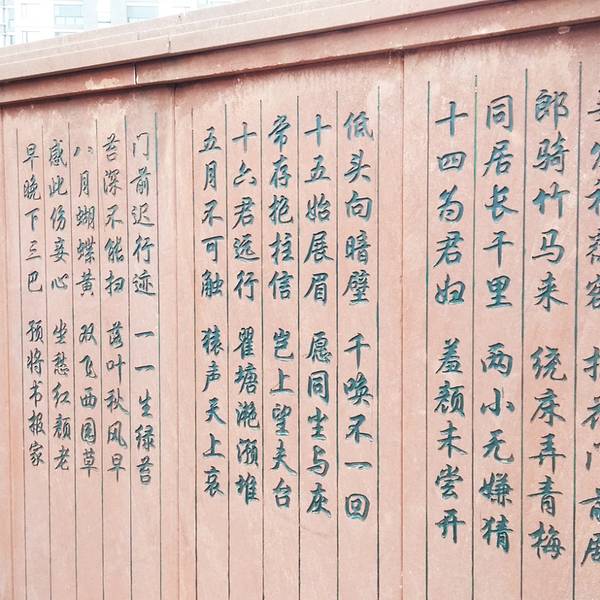 妾发初覆额 折花门前剧
郎骑竹马来 绕床弄青梅
同居长干里 两小无嫌猜
十四为君妇 羞颜未尝开
低头向暗壁 千唤不一回
十五始展眉 愿同尘与灰
常存抱柱信 岂上望夫台
十六君远行 瞿塘滟滪堆
五月不可触 猿声天上哀
门前迟行迹 一一生绿苔
苔深不能扫 落叶秋风早
八月蝴蝶黄 双飞西园草
感此伤妾心 坐愁红颜老
早晚下三巴 预将书报家